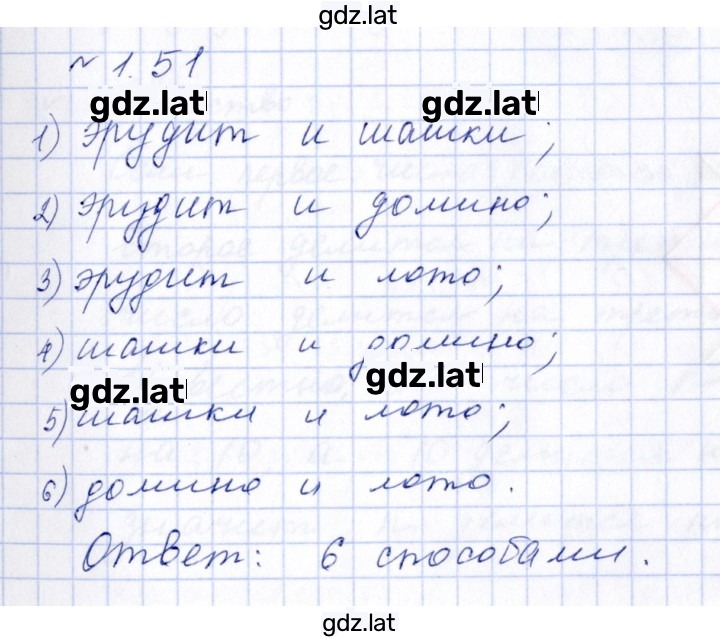 gdz.lat
№ 1.51
gdz.lat gdz.lat
1) эрудит и шашки;
2) эрудит и домино;
3) эрудит и лото;
4) шашки и домино;
gdz.lat gdz.lat
5) шашки и лото;
6) домино и лото.
Ответ: 6 способами.
gdz.lat